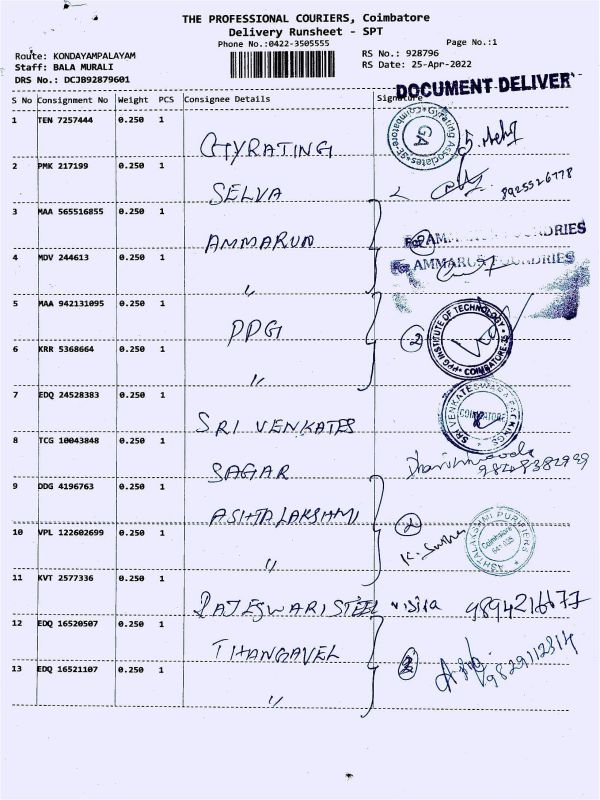 THE PROFESSIONAL COURIERS, Coimbatore
Delivery Runsheet - SPT
Phone No.:0422-3505555
Page No.:1
Route: KONDAYAMPALAYAM
RS No.: 928796
Staff: BALA MURALI
RS Date: 25-Apr-2022
DRS No.: DCJB92879601
DOCUMENT DELIVER
S No Consignment No Weight PCS Consignee Details Signature
1 TEN 7257444 0.250 1 GYRATING
Gyrating Associates Coimbatore GA
2 PMK 217199 0.250 1 SELVA 8925526778
3 MAA 565516855 0.250 1 AMMARUN
For AMMARUS FOUNDRIES
4 MDV 244613 0.250 1 "
For AMMARUS FOUNDRIES
5 MAA 942131095 0.250 1 PPG 2
PPG INSTITUTE OF TECHNOLOGY COIMBATORE-35
6 KRR 5368664 0.250 1 "
7 EDQ 24528383 0.250 1 SRI VENKATES
SRI VENKATESWARA PACKINGS COIMBATORE
8 TCG 10043848 0.250 1 SAGAR
9 DDG 4196763 0.250 1 ASHTALAKSHMI 2
ASHTALAKSHMI PURIFIERS Coimbatore
10 VPL 122602699 0.250 1 "
11 KVT 2577336 0.250 1 RAJESWARI STEEL 9894216677
12 EDQ 16520507 0.250 1 THANGAVEL 2 9829112814
13 EDQ 16521107 0.250 1 "